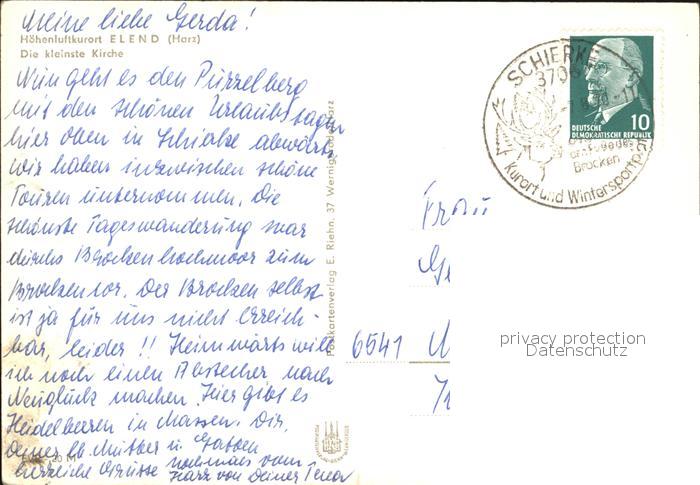 Meine liebe Gerda!
Höhenluftkurort ELEND (Harz)
Die kleinste Kirche
Nun geht es den Purzelberg
mit den schönen Urlaubstagen
hier oben in Schierke abwärts
wir haben inzwischen schöne
Touren unternommen. Die
schönste Tageswanderung war
durchs Brockenhochmoor zum
Brockentor. Der Brocken selbst
ist ja für uns nicht erreich-
bar, leider!! Heimwärts will
ich noch einen Abstecher nach
Neuglück machen. Hier gibt es
Heidelbeeren in Massen. Dir,
Deiner lb Mutter u. Gatten
herzliche Grüsse nochmals vom
Harz von Deiner
Postkartenverlag E. Riehn, 37 Wernigerode/Harz
SCHIERKE
3706
Brocken
Kurort und Wintersportplatz
10
DEUTSCHE
DEMOKRATISCHE REPUBLIK
Frau
6541
privacy protection
Datenschutz